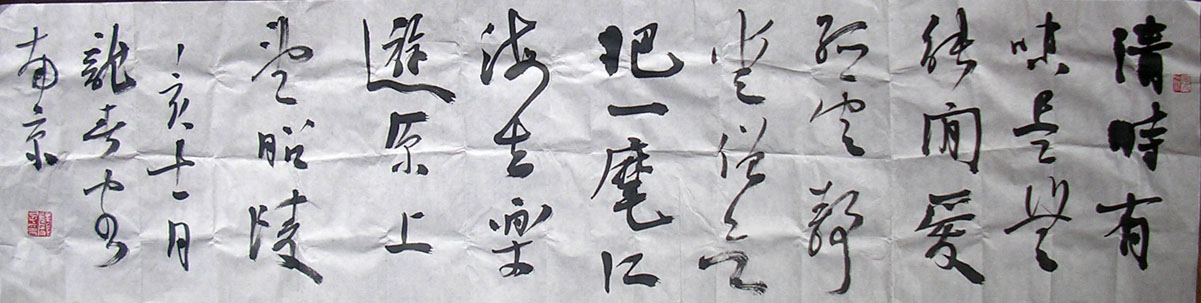 清時有
味是無
能閒愛
孤雲静
愛僧欲
把一麾江
海去樂
遊原上
望昭陵
丁亥十一月
龍春
南京